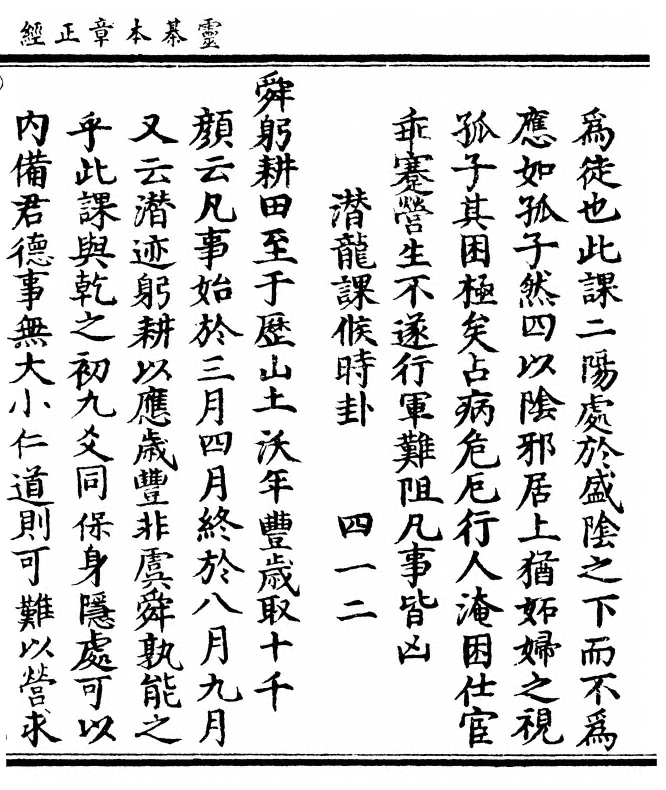 靈棊本章正經
為徒也此課二陽處於盛陰之下而不為
應如孤子然四以陰邪居上猶妬婦之視
孤子其困極矣占病危厄行人淹困仕宦
乖蹇營生不遂行軍難阻凡事皆凶
潛龍課候時卦 四一二
舜躬耕田至于歷山土沃年豐歲取十千
顏云凡事始於三月四月終於八月九月
又云潛迹躬耕以應歲豐非虞舜孰能之
乎此課與乾之初九爻同保身隱處可以
內備君德事無大小仁道則可難以營求